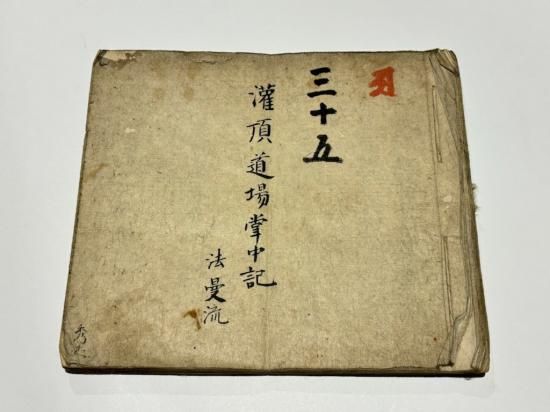 丑
三十五
灌頂道場掌中記
法曼流